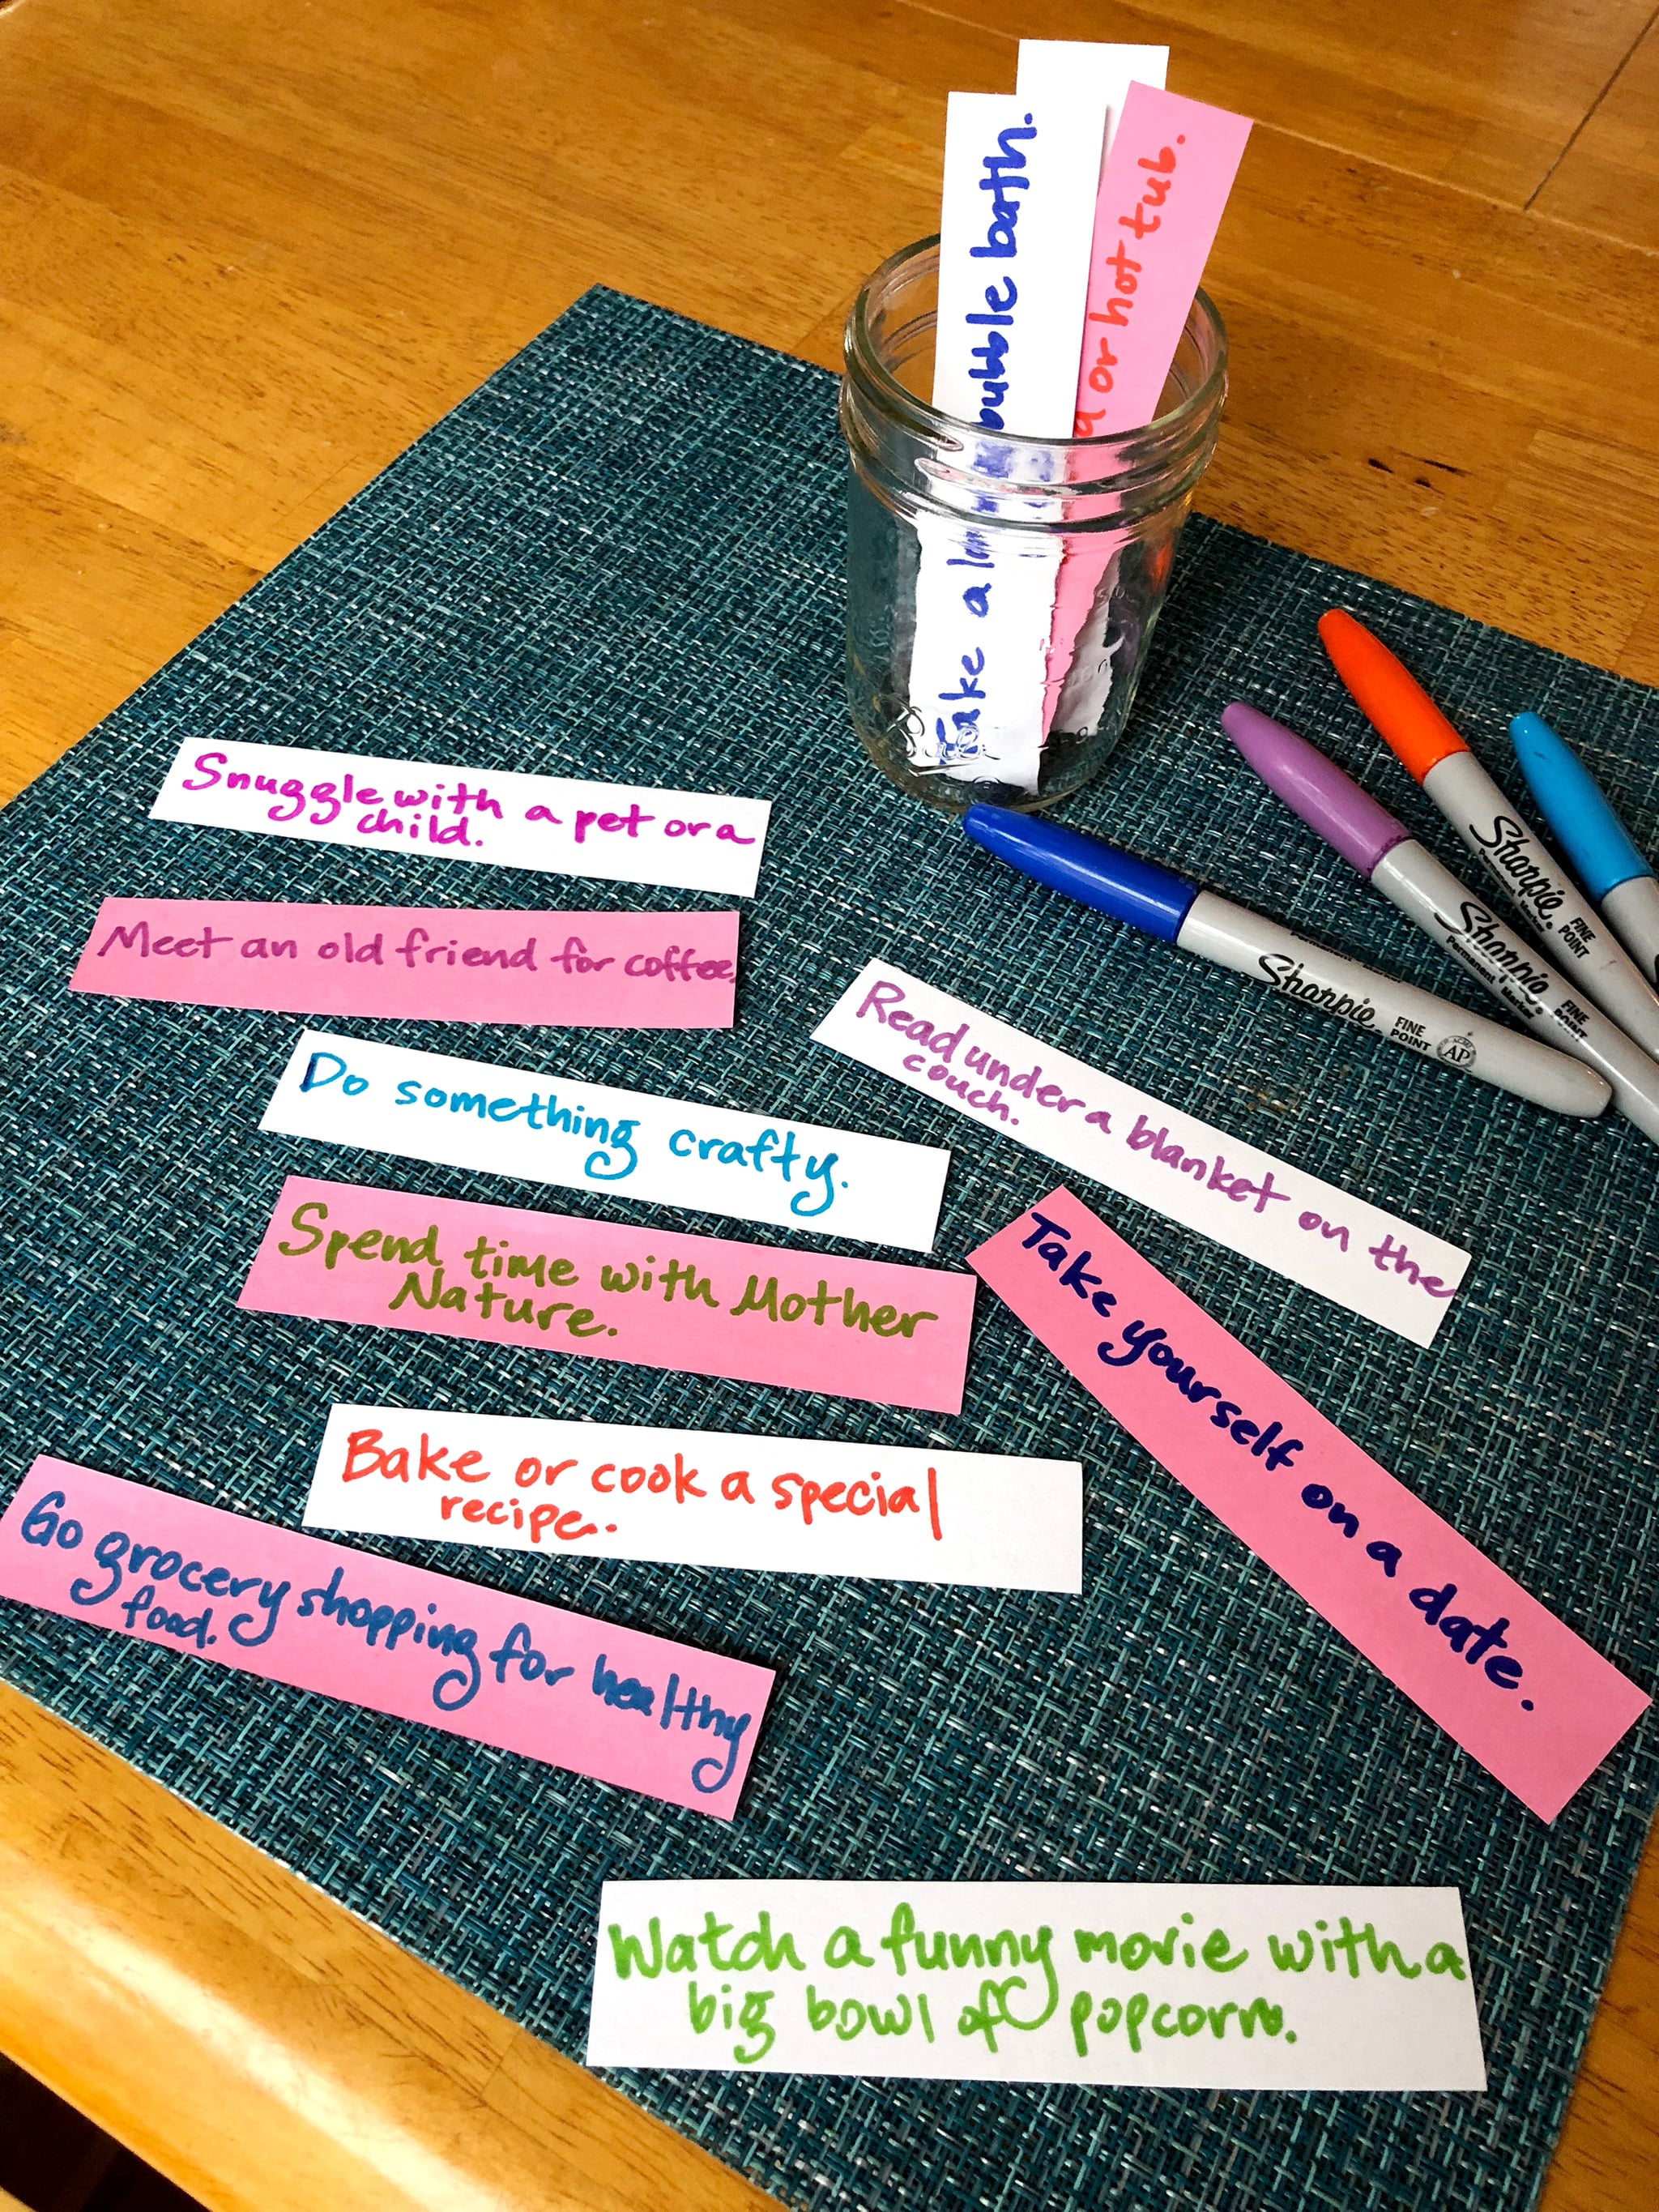 Take a bubble bath.
or hot tub.
Snuggle with a pet or a
child.
Meet an old friend for coffee.
Do something crafty.
Read under a blanket on the
couch.
Spend time with Mother
Nature.
Take yourself on a date.
Bake or cook a special
recipe.
Go grocery shopping for healthy
food.
Watch a funny movie with a
big bowl of popcorn.
Sharpie
FINE
POINT
AP
Sharpie
Permanent Marker
FINE
POINT
Sharpie
FINE
POINT